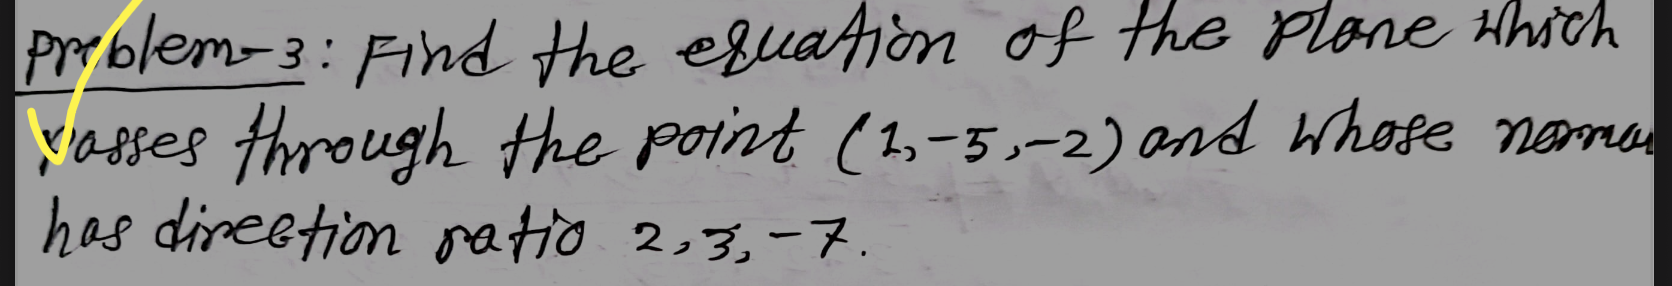 Problem-3: Find the equation of the plane which
passes through the point (1,-5,-2) and whose norma
has direction ratio 2,3,-7.